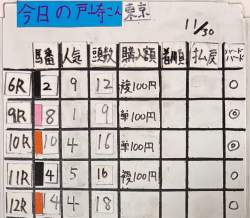 今日の戸崎さん 東京
11/30
馬番 人気 頭数 購入額 着順 払戻 ハードハード
6R 2 9 12 複100円 ○
9R 8 1 9 単100円 ◎
10R 10 4 16 単100円 ◎
11R 4 5 16 複100円 ○
12R 4 4 18 ○